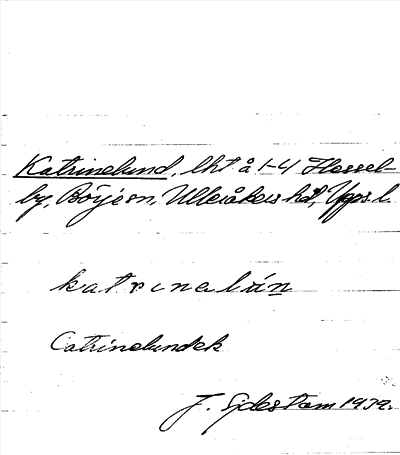 Katrinelund, lht å 1-4 Hessel-
by, Börje sn, Ulleråkers hd, Upps l.
katrinelún
Catrinelundek
J. Sjdestam 1939.